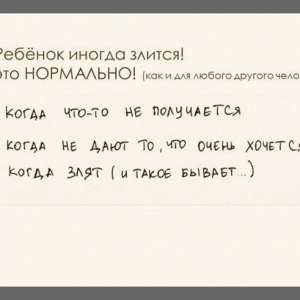 Ребёнок иногда злится!
это НОРМАЛЬНО! (как и для любого другого чело
КОГДА ЧТО-ТО НЕ ПОЛУЧАЕТСЯ
КОГДА НЕ ДАЮТ ТО, ЧТО ОЧЕНЬ ХОЧЕТСЯ
КОГДА ЗЛЯТ (И ТАКОЕ БЫВАЕТ...)